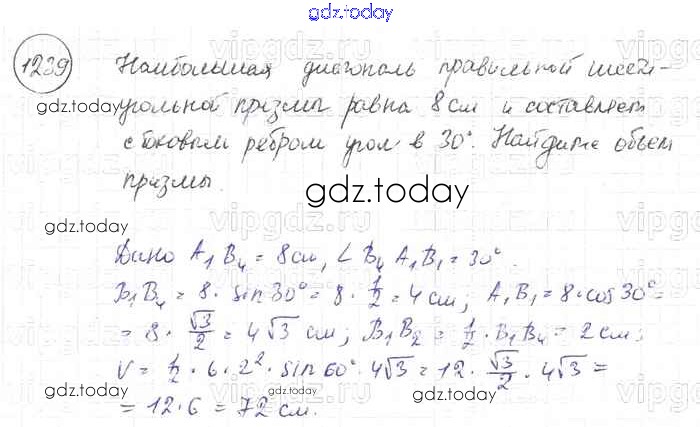 gdz.today
1239 Наибольшая диагональ правильной шест-
угольной призмы равна 8 см и составляет
с боковым ребром угол в 30°. Найдите объем
призмы.
gdz.today
gdz.today
gdz.today
Дано A₁B₄ = 8см, ∠ B₄ A₁ B₁ = 30°.
B₁B₄ = 8 · sin 30° = 8 · 1/2 = 4 см; A₁B₁ = 8 · cos 30° =
= 8 · √3/2 = 4√3 см; B₁B₂ = 1/2 · B₁B₄ = 2 см;
V = 1/2 · 6 · 2² · sin 60° · 4√3 = 12 · √3/2 · 4√3 =
= 12 · 6 = 72 см.
gdz.today
gdz.today